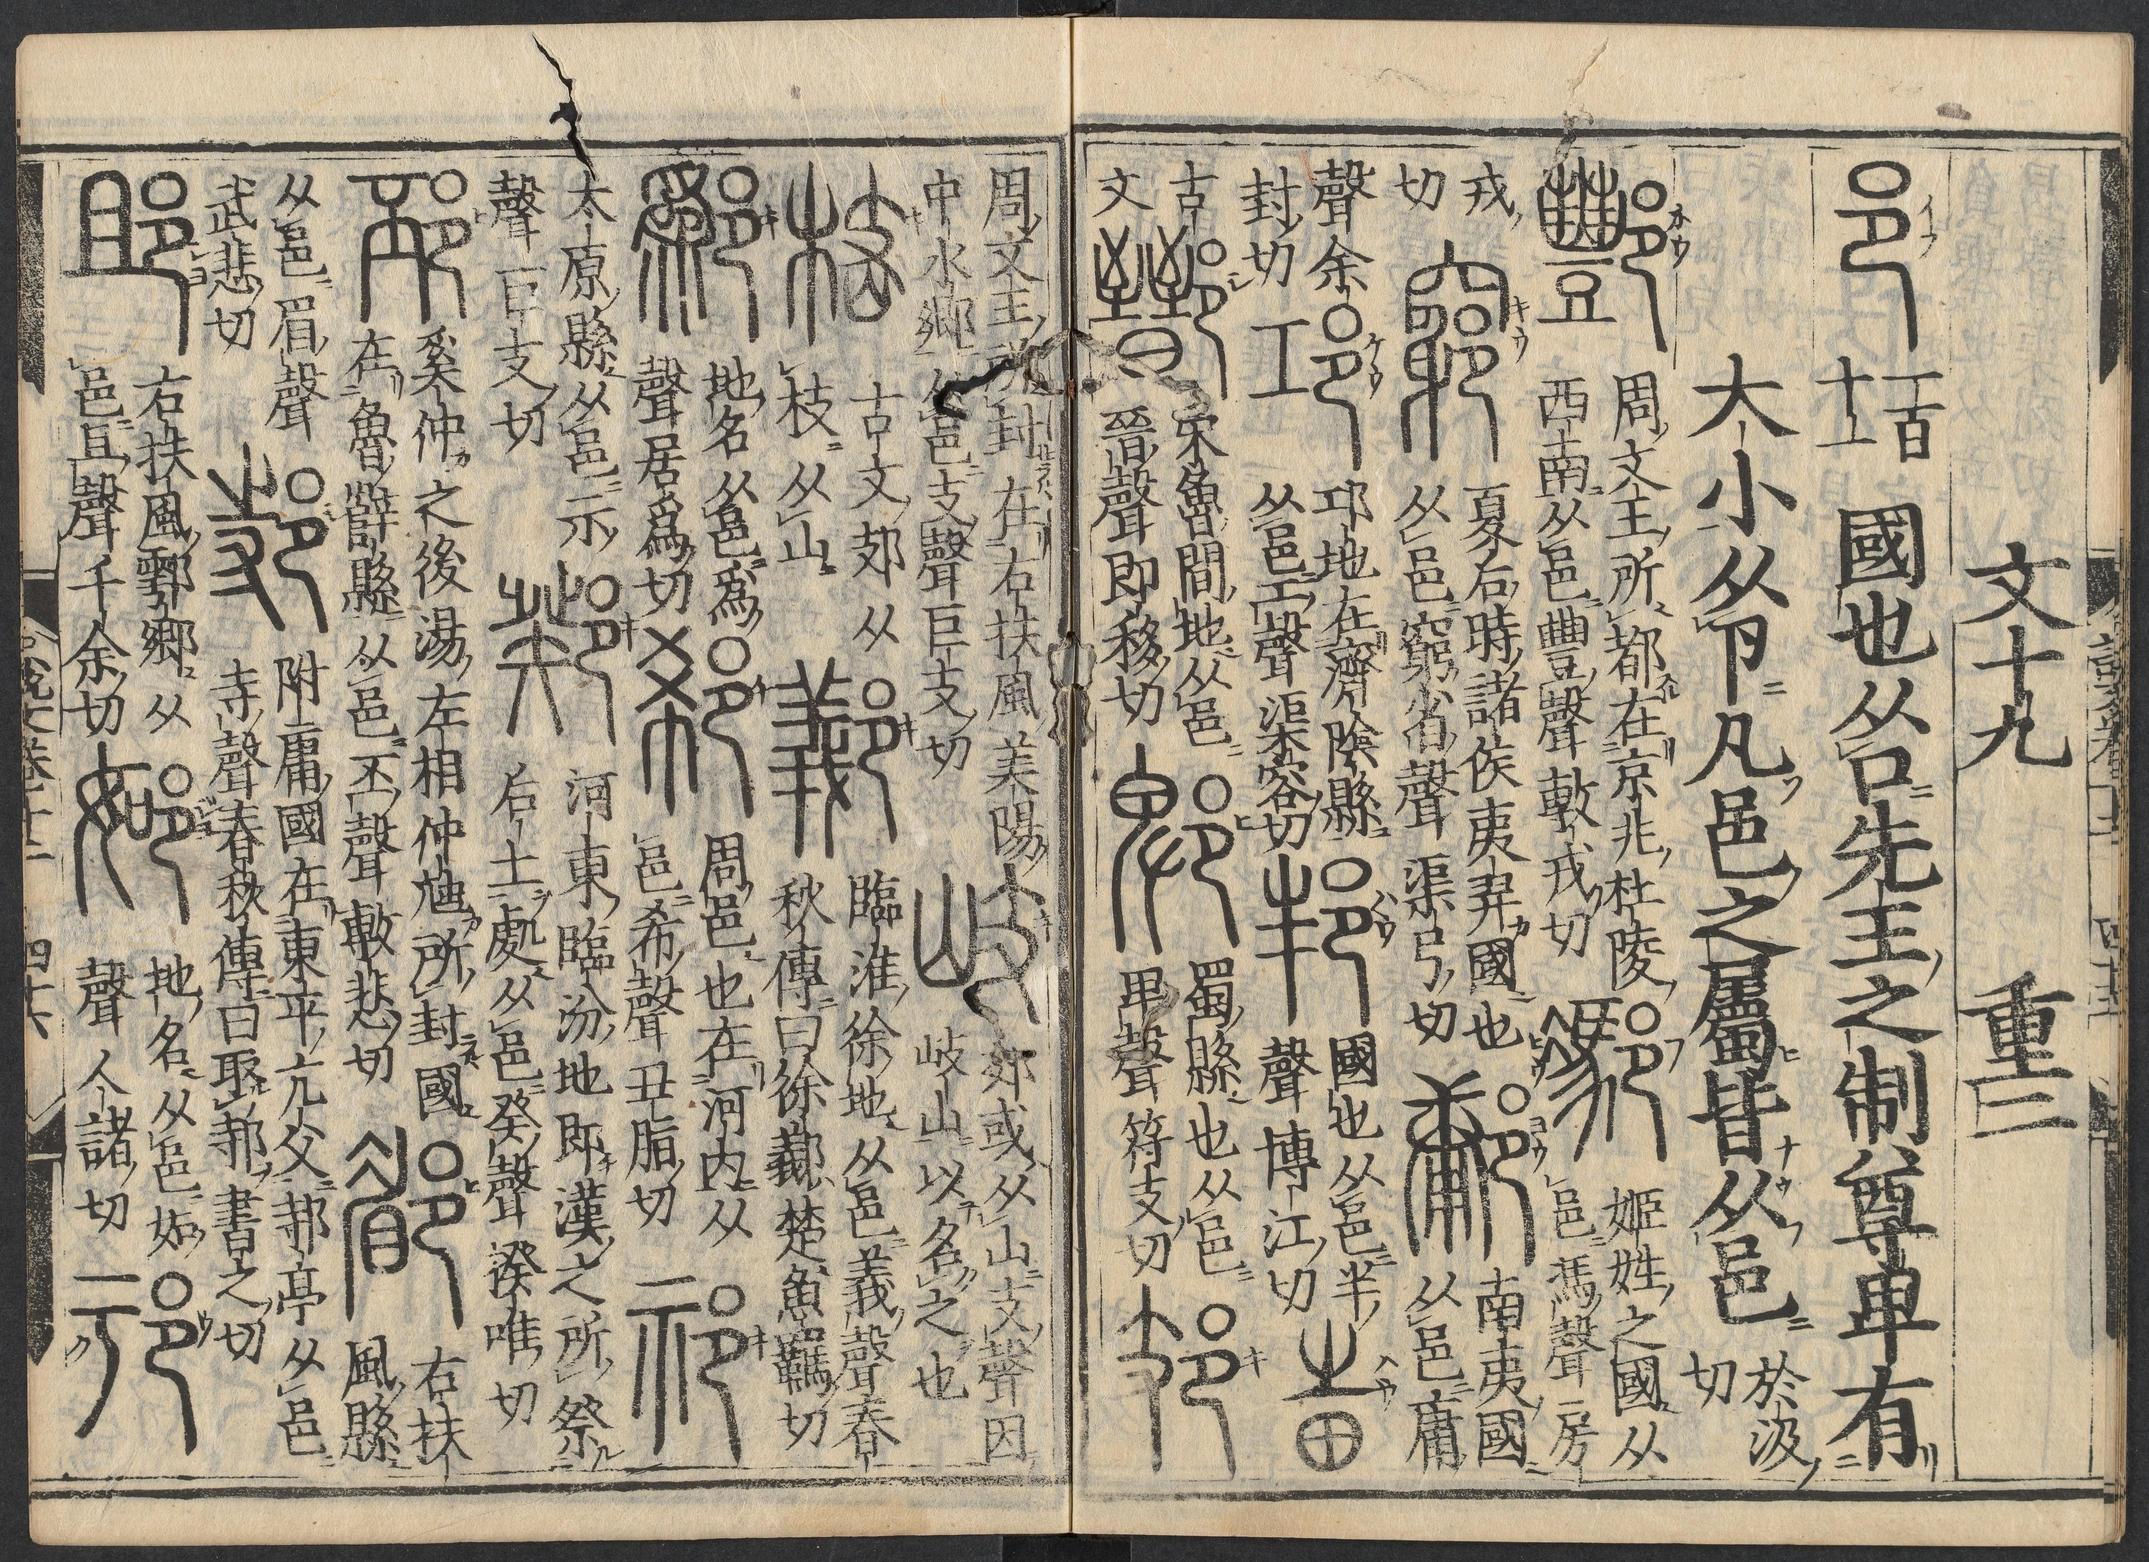 文十九 重三
邑 一百十一 國也从囗先王之制尊卑有
大小从卪凡邑之屬皆从邑 於汲切
酆 周文王所都在京兆杜陵
西南从邑豐聲敷戎切
姬姓之國从
邑馮聲房
戎切
竆 夏后時諸侯夷羿國也
从邑窮省聲渠弓切
鄘 南夷國
从邑庸
聲余封切
邛 邛地在濟陰縣
从邑工聲渠容切
邦 國也从邑丰
聲博江切
古文
鄑 宋魯間地从邑
晉聲即移切
郫 蜀縣也从邑
卑聲符支切
周文王所封在右扶風美陽
中水鄉从邑支聲巨支切
岐 郊或从山支聲因
岐山以名之也
古文郊从
枝从山
臨淮徐地从邑義聲春
秋傳曰徐䣡楚魚羈切
鄬 地名从邑爲
聲居爲切
郗 周邑也在河内从
邑希聲丑脂切
祁 太原縣从邑示
聲巨支切
鄈 河東臨汾地即漢之所祭
后土處从邑癸聲揆唯切
邳 奚仲之後湯左相仲虺所封國
在魯薛縣从邑丕聲敷悲切
郿 右扶
風縣
从邑眉聲
武悲切
邿 附庸國在東平亢父邿亭从邑
寺聲春秋傳曰取邿書之切
右扶風鄠鄉从
邑且聲千余切
地名从邑如
聲人諸切
邘
説文卷十二 四十六